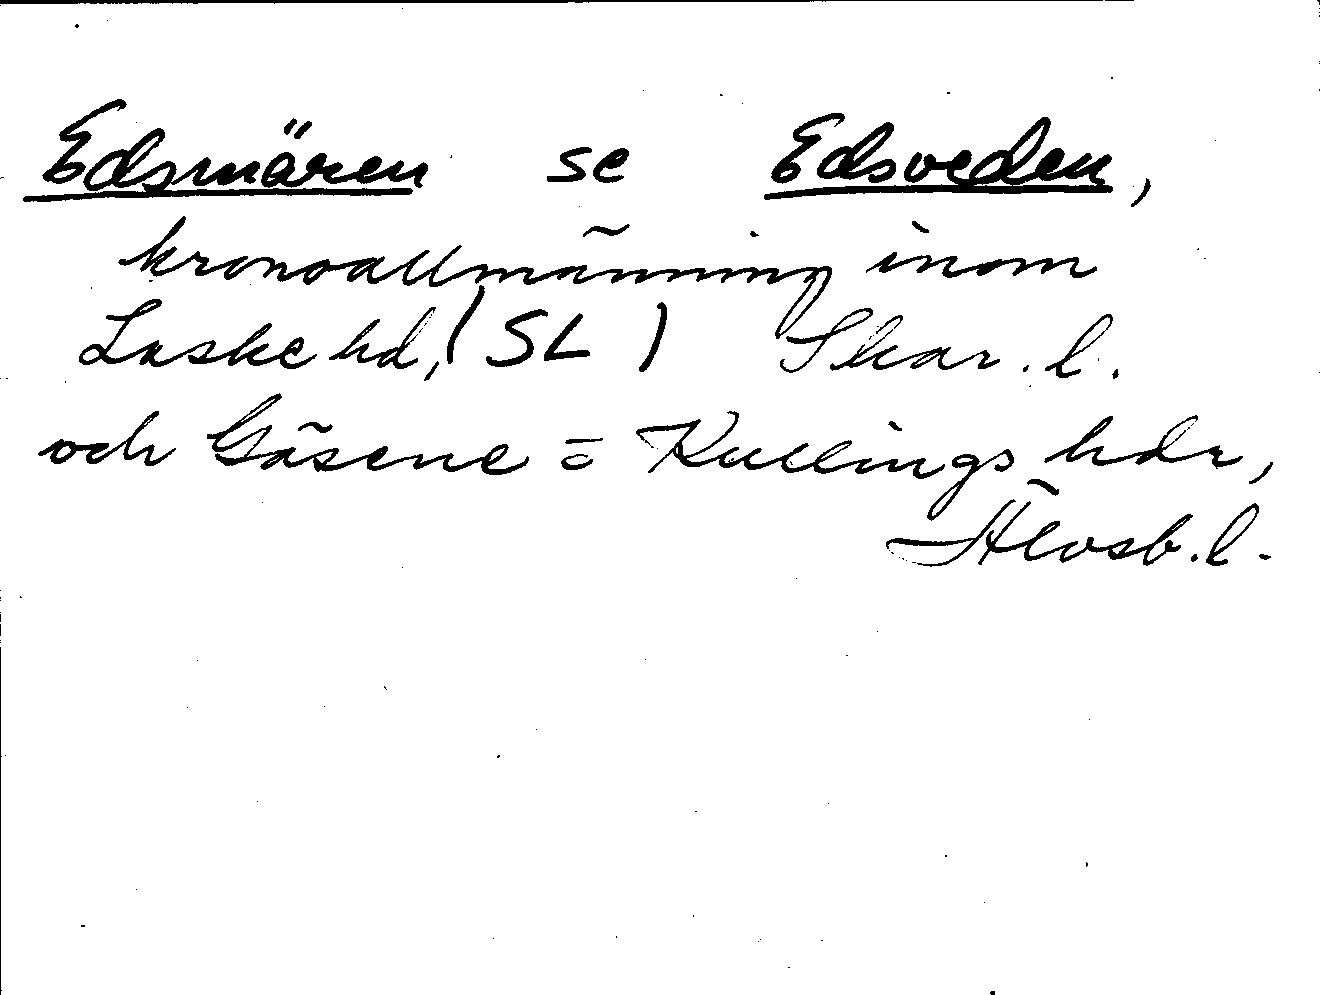 Edsmären se Edsveden,
kronoallmänning inom
Laske hd, (SL) Skar. l.
och Gäsene = Kullings hdr,
Älvsb. l.